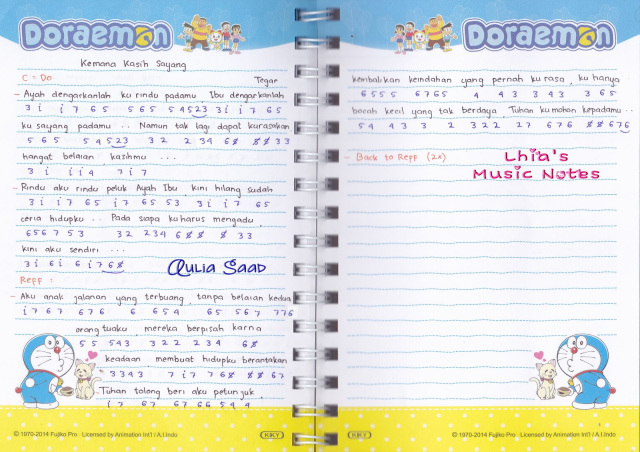 Doraemon
Kemana Kasih Sayang
C = Do
Tegar
- Ayah dengarkanlah ku rindu padamu Ibu dengarkanlah
3 i i 7 6 5 5 6 5 5 4 5 2 3 3 i i 7 6 5
ku sayang padamu .. Namun tak lagi dapat kurasakan
5 6 5 5 4 5 2 3 3 2 2 3 4 6 8 8 3 3
hangat belaian kasihmu ...
3 i i i 4 7 i 7
- Rindu aku rindu peluk Ayah Ibu, kini hilang sudah
3 i i 7 6 5 i 7 6 5 5 3 3 i i 7 6 5
ceria hidupku .. Pada siapa ku harus mengadu,
6 5 6 7 5 3 3 2 2 3 4 6 8 8 8 3 3
kini aku sendiri ...
3 i 6 i 6 i 7 6 8
Aulia Saad
Reff :
- Aku anak jalanan yang terbuang, tanpa belaian kedua
i 7 6 7 6 7 6 6 6 5 4 6 5 5 6 7 7 7 6
orang tuaku, mereka berpisah karna
5 5 5 4 3 3 2 2 2 3 4 6 8
keadaan membuat hidupku berantakan
3 3 4 3 7 i 7 7 6 8 8 8 6 7
Tuhan tolong beri aku petunjuk,
i 7 6 7 6 7 6 6 5 4 4
© 1970-2014 Fujiko Pro · Licensed by Animation Int'l / A.I.Indo
KIKY
Doraemon
kembalikan keindahan yang pernah ku rasa, ku hanya
6 5 5 5 6 7 6 5 4 4 3 3 4 3 3 6 5
bocah kecil yang tak berdaya, Tuhan ku mohon kepadamu ..
5 4 4 3 3 2 3 2 2 2 7 6 7 6 8 8 6 7 6
- Back to Reff (2x)
Lhia's
Music Notes
KIKY
© 1970-2014 Fujiko Pro · Licensed by Animation Int'l / A.I.Indo